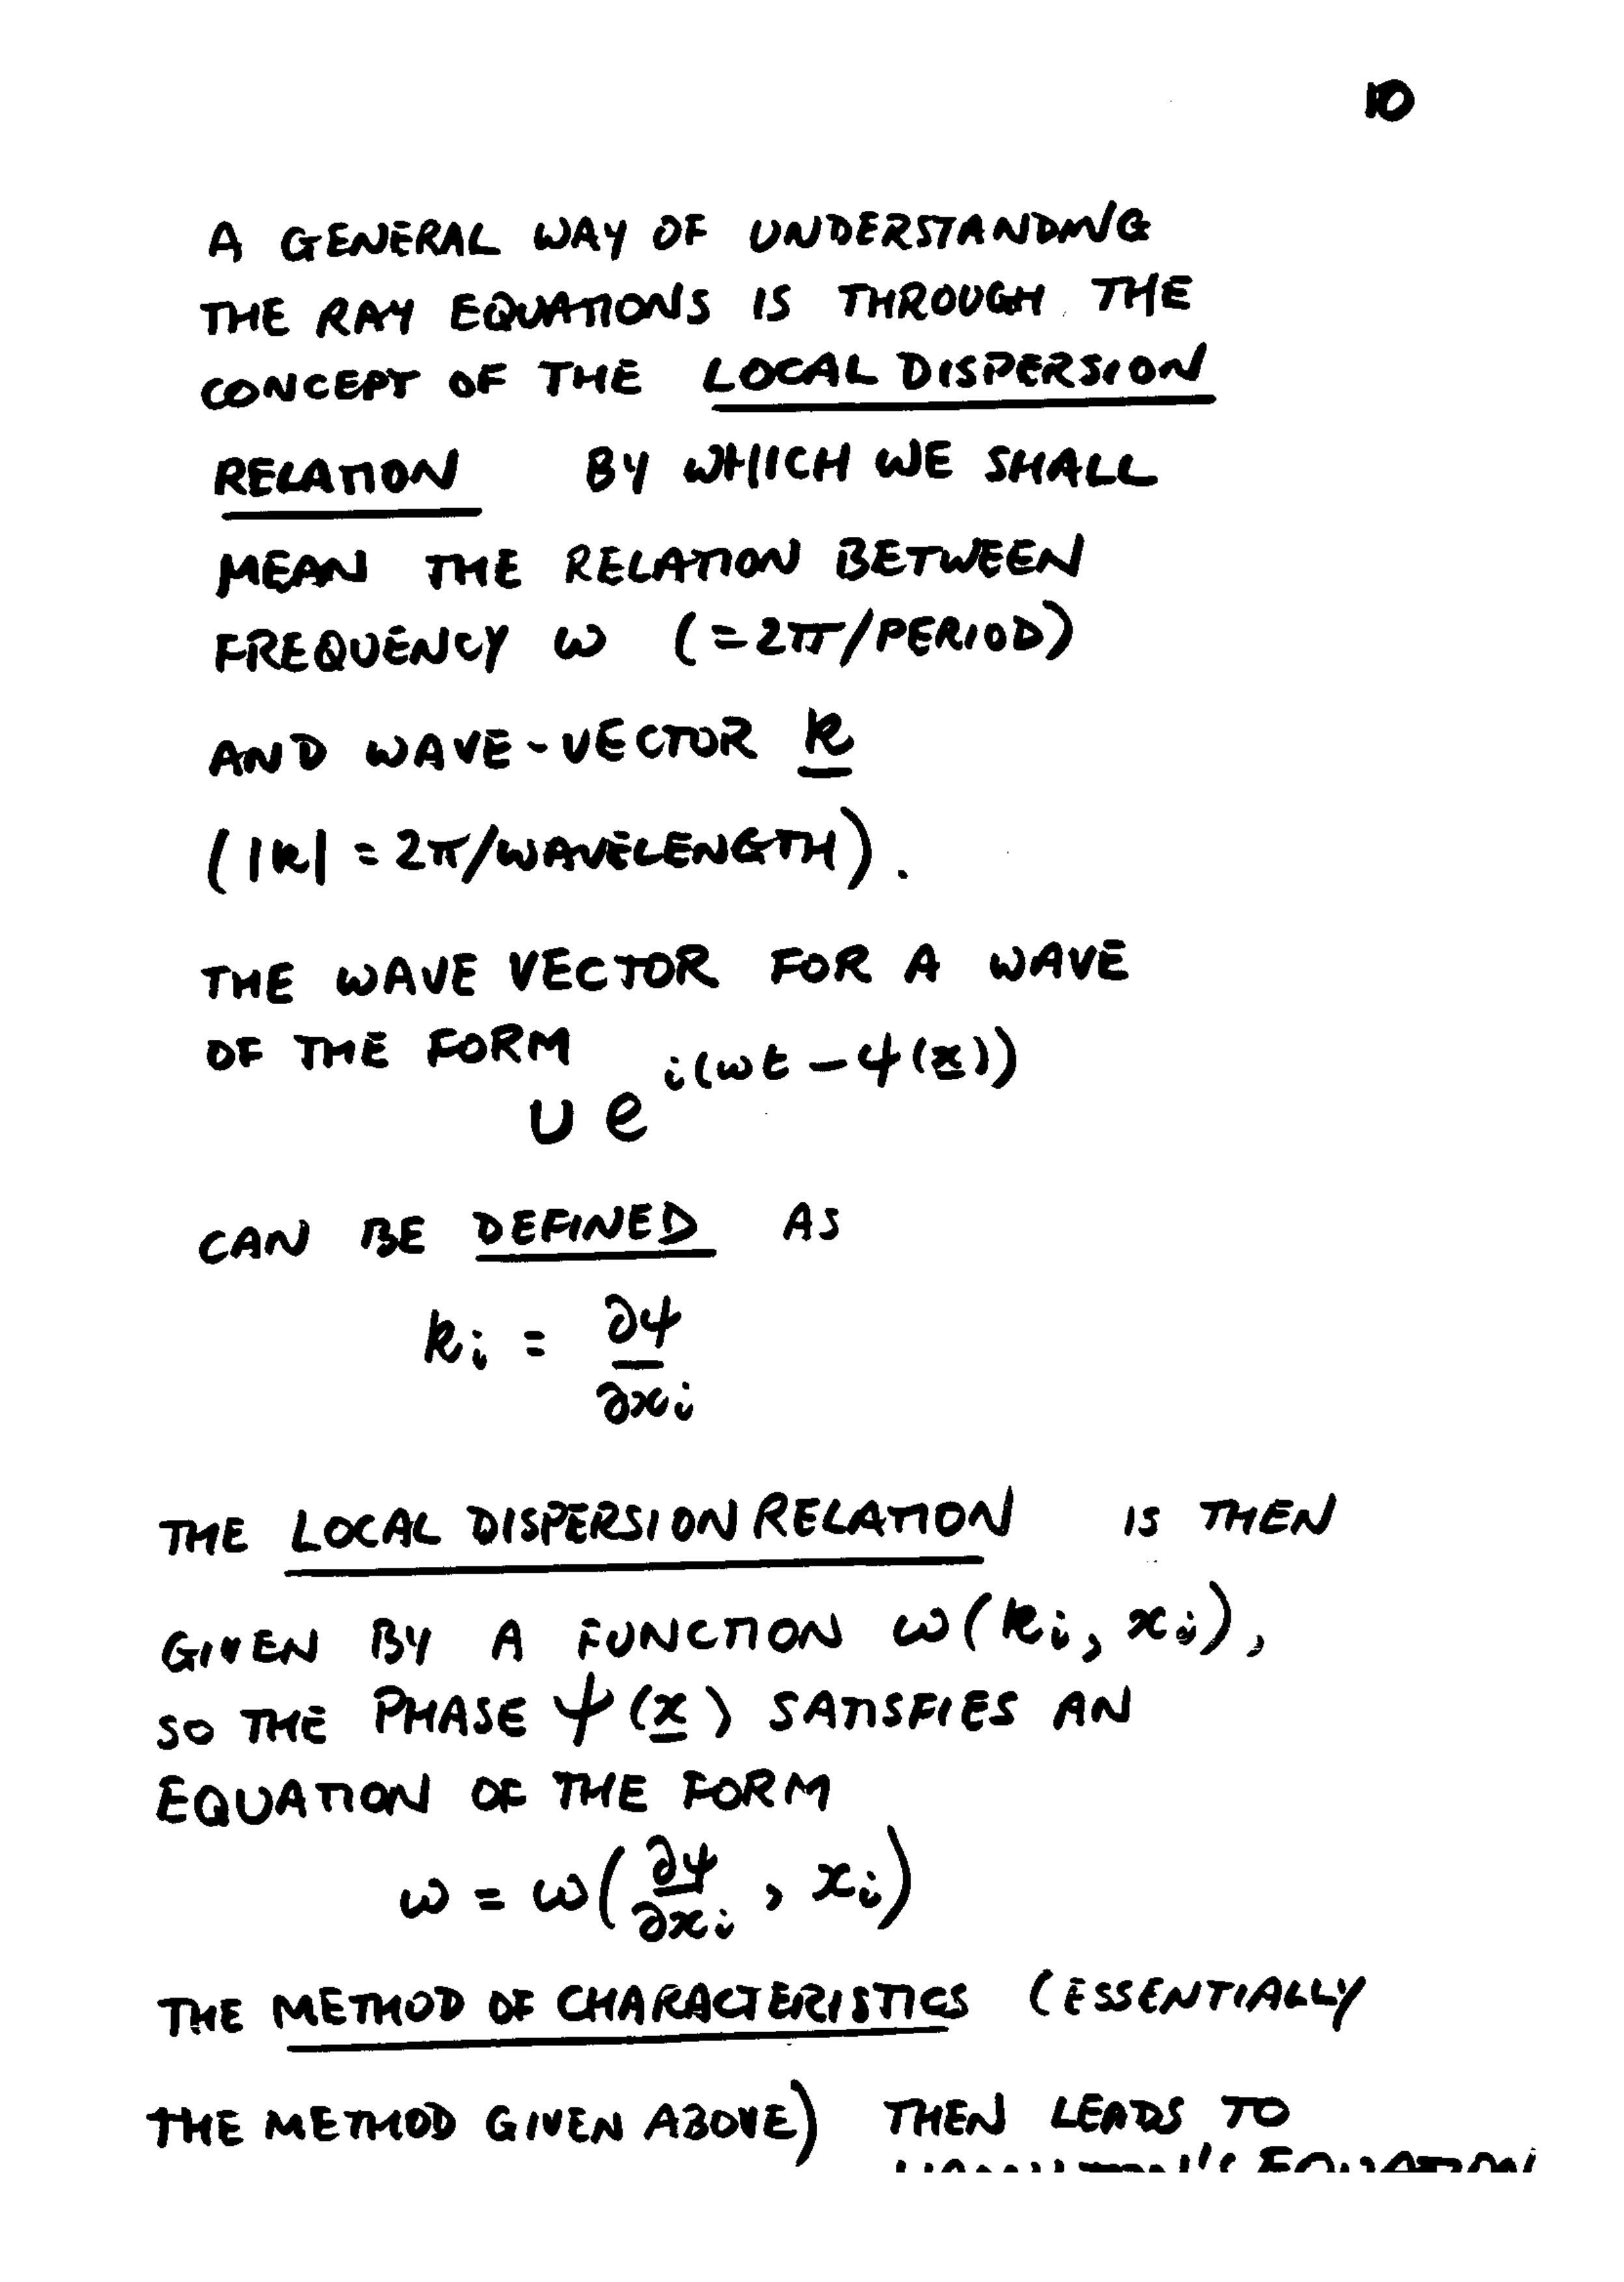 10
A GENERAL WAY OF UNDERSTANDING
THE RAY EQUATIONS IS THROUGH THE
CONCEPT OF THE LOCAL DISPERSION
RELATION BY WHICH WE SHALL
MEAN THE RELATION BETWEEN
FREQUENCY ω (=2π/PERIOD)
AND WAVE-VECTOR k
(|k| = 2π/WAVELENGTH).
THE WAVE VECTOR FOR A WAVE
OF THE FORM
U e^{i(ωt − ψ(x))}
CAN BE DEFINED AS
k_i = ∂ψ/∂x_i
THE LOCAL DISPERSION RELATION IS THEN
GIVEN BY A FUNCTION ω(k_i, x_i),
SO THE PHASE ψ(x) SATISFIES AN
EQUATION OF THE FORM
ω = ω(∂ψ/∂x_i, x_i)
THE METHOD OF CHARACTERISTICS (ESSENTIALLY
THE METHOD GIVEN ABOVE) THEN LEADS TO